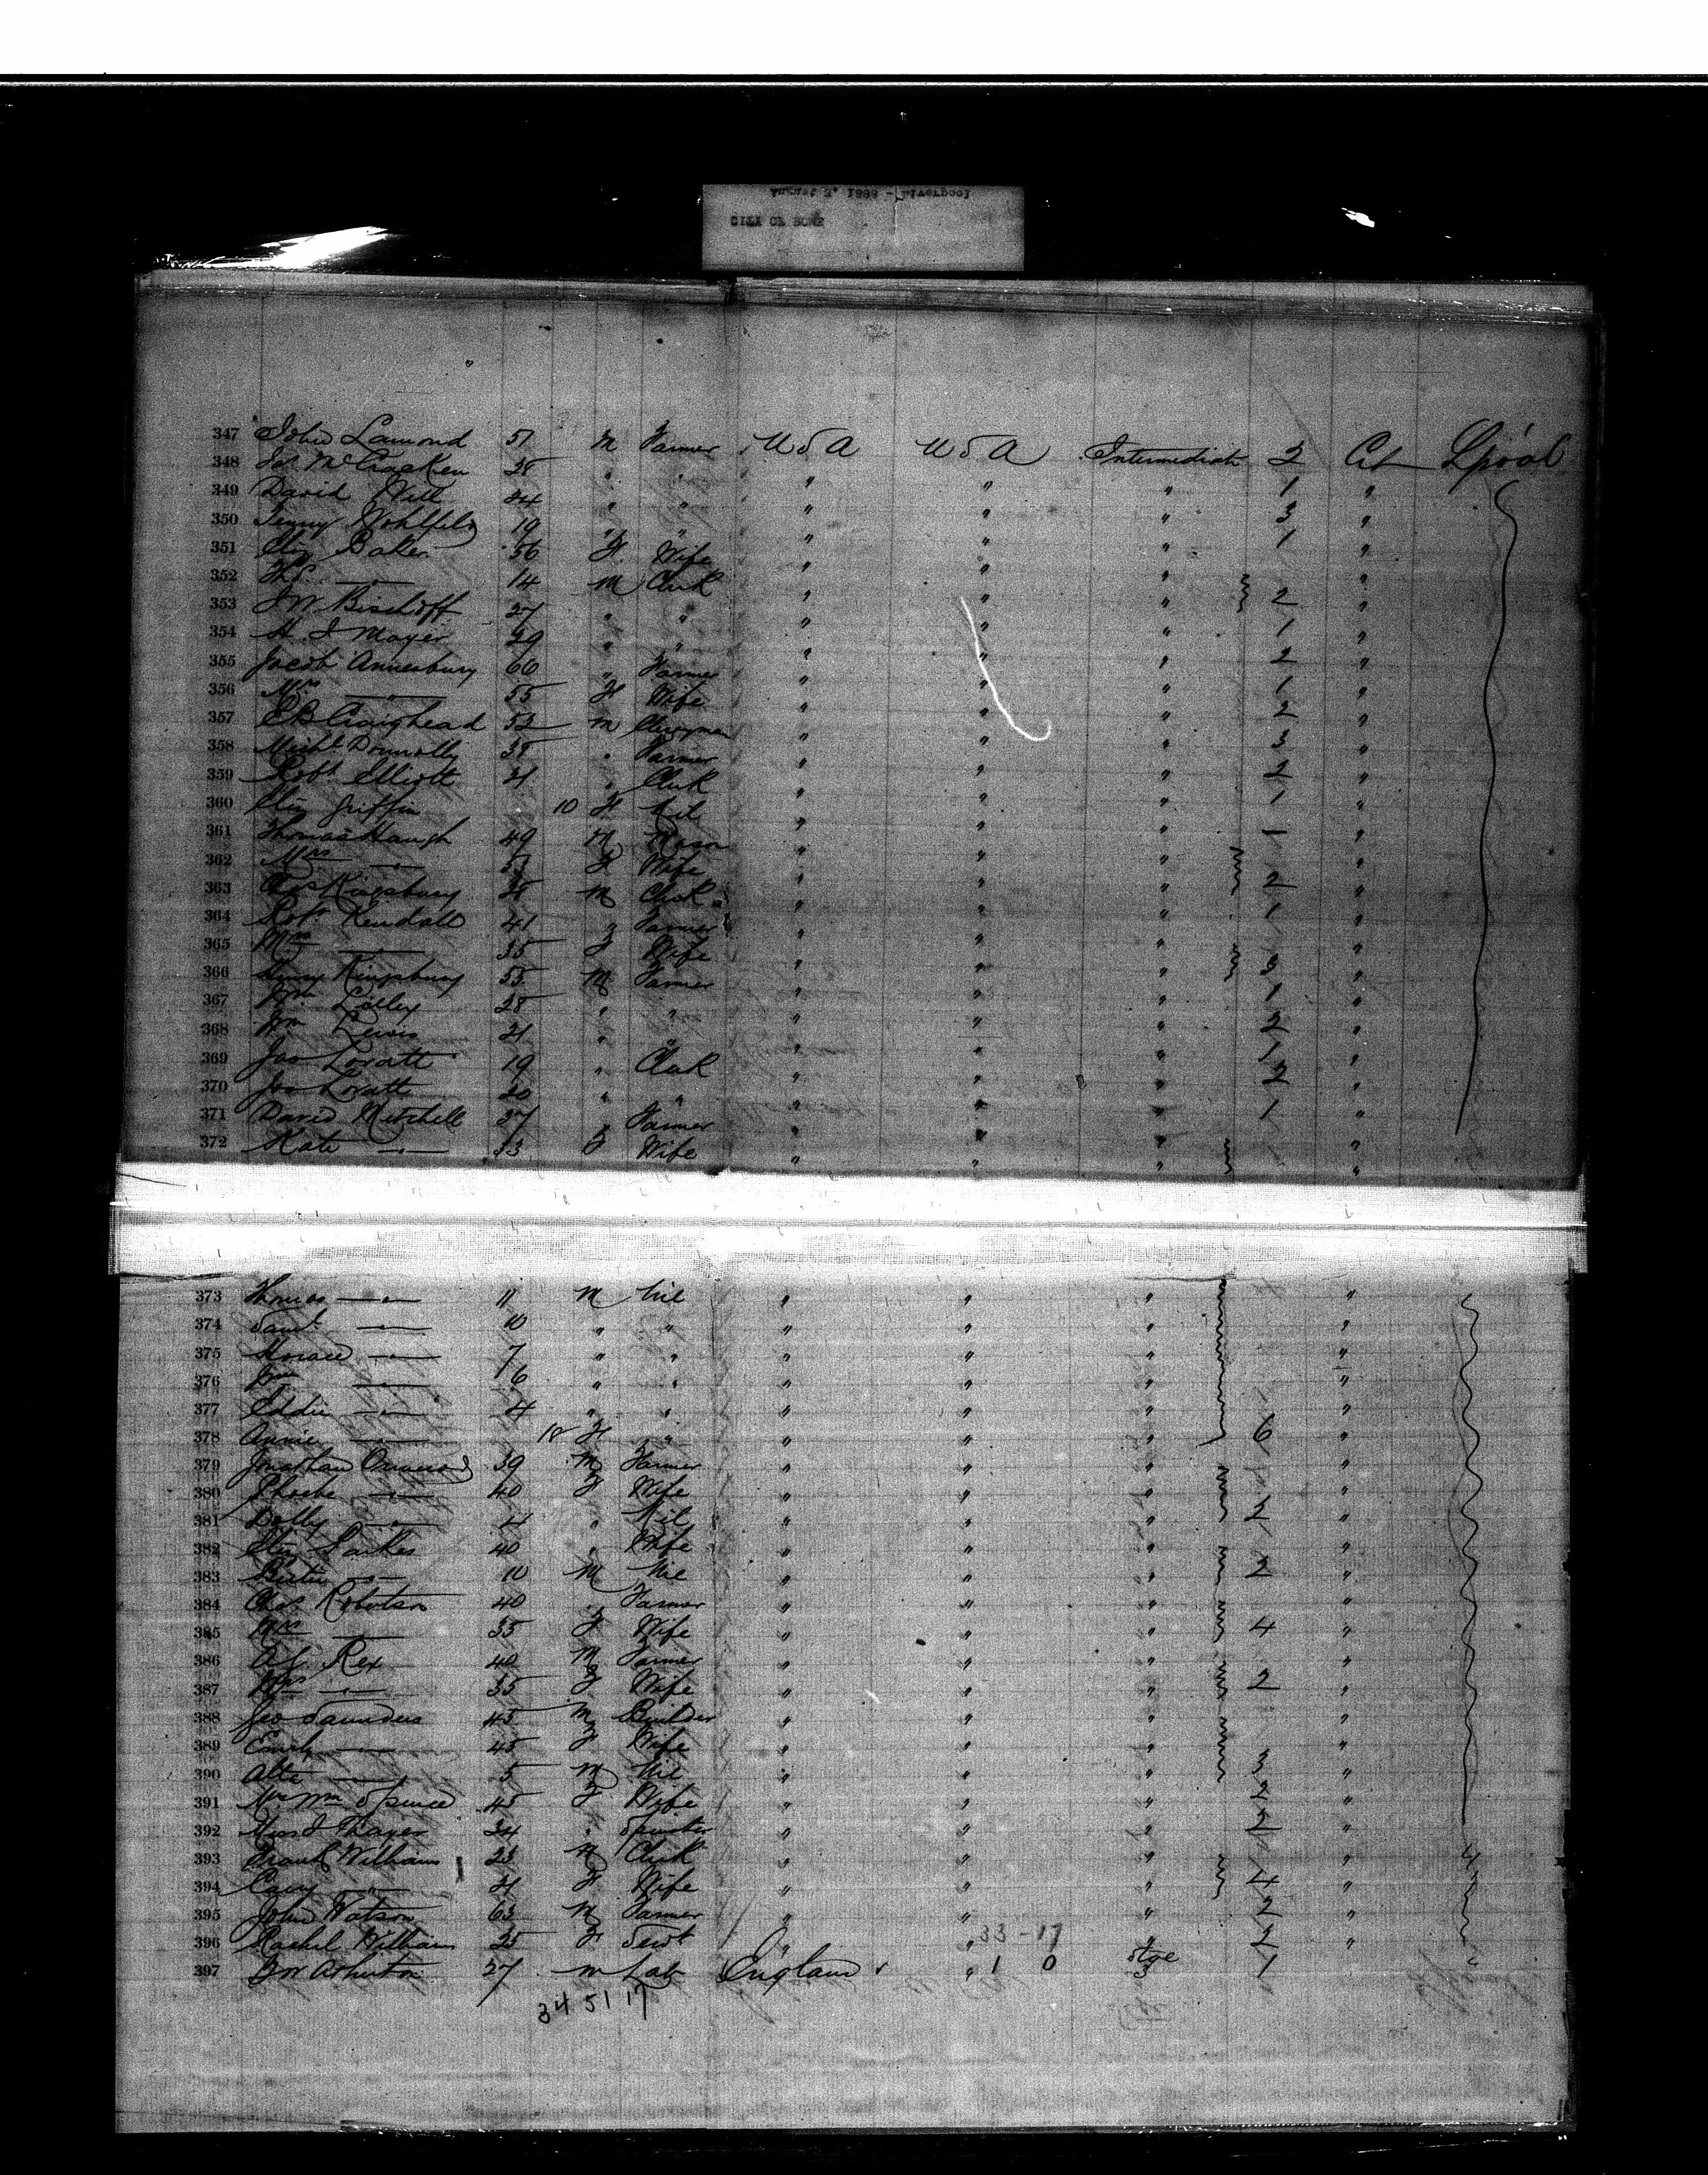 August 2, 1889 - Liverpool
CITY OF ROME
347 John Lamond 51 M Farmer U S A U S A Intermediate 2 Cit Lpool
348 Js. McCracken 28 " " " " " 1 "
349 David Will 24 " " " " " 3 "
350 Jenny 19 " " " " " 1 "
351 Eliz Baker 56 F Wife " " " "
352 Ths. — " — 14 M Clerk " " " 2 "
353 J W Bischoff 27 " " " " " 1 "
354 H. J Mayer 29 " " " " " 2 "
355 Jacob Annesbury 60 " Farmer " " " 1 "
356 Mrs — " — 55 F Wife " " " 2 "
357 E B Craighead 52 M Clergyman " " " 3 "
358 Michl Donnolly 38 " Farmer " " " 2 "
359 Robt Elliott 21 " Clerk " " " 1 "
360 Eliz Griffin 10 F Nil " " " 1 "
361 Thomas Haugh 49 M Mason " " " "
362 Mrs — " — 53 F Wife " " " 2 "
363 Chas Kingsbury 28 M Clerk " " " 1 "
364 Robt Kendall 41 " Farmer " " " "
365 Mrs — " — 35 F Wife " " " 3 "
366 Henry Kingsbury 55 M Farmer " " " 1 "
367 Wm Lolley 28 " " " " " 2 "
368 Wm Lewis 21 " " " " " 1 "
369 Jas Lovatt 19 " Clerk " " " 2 "
370 Jos Lovatt 20 " " " " " 1 "
371 David Mitchell 37 " Farmer " " " "
372 Kate — " — 33 F Wife " " " "
373 Thomas — " — 11 M Nil " " " "
374 Saml — " — 10 " " " " " "
375 Horace — " — 7 " " " " " "
376 Wm — " — 6 " " " " " "
377 Eddie — " — 4 " " " " " "
378 Annie — " — 18 F " " " " 6 "
379 Jonathan 39 M Farmer " " " "
380 Phoebe — " — 40 F Wife " " " "
381 Dolly — " — 4 " Nil " " " 2 "
382 Eliz Parkes 40 " Wife " " " "
383 Bertie — " — 10 M Nil " " " 2 "
384 Chas. Robertson 40 " Farmer " " " "
385 Mrs — " — 35 F Wife " " " 4 "
386 Rex 40 M Farmer " " " "
387 Mrs — " — 35 F Wife " " " 2 "
388 Geo Saunders 45 M Builder " " " "
389 Emily — " — 45 F Wife " " " "
390 — " — 5 M Nil " " " 3 "
391 Mrs Wm Spence 45 F Wife " " " 2 "
392 Miss J Thayer 24 " Spinster " " " 2 "
393 Frank Williams 23 M Clerk " " " "
394 — " — 21 F Wife " " " 4 "
395 John Watson 63 M Farmer " " " 2 "
396 Rachel Williams 25 F Servt " " 33 - 17 " 2 "
397 Ashurton 27 M Lab England " 1 0 Stge 3 1 "
34 51 17